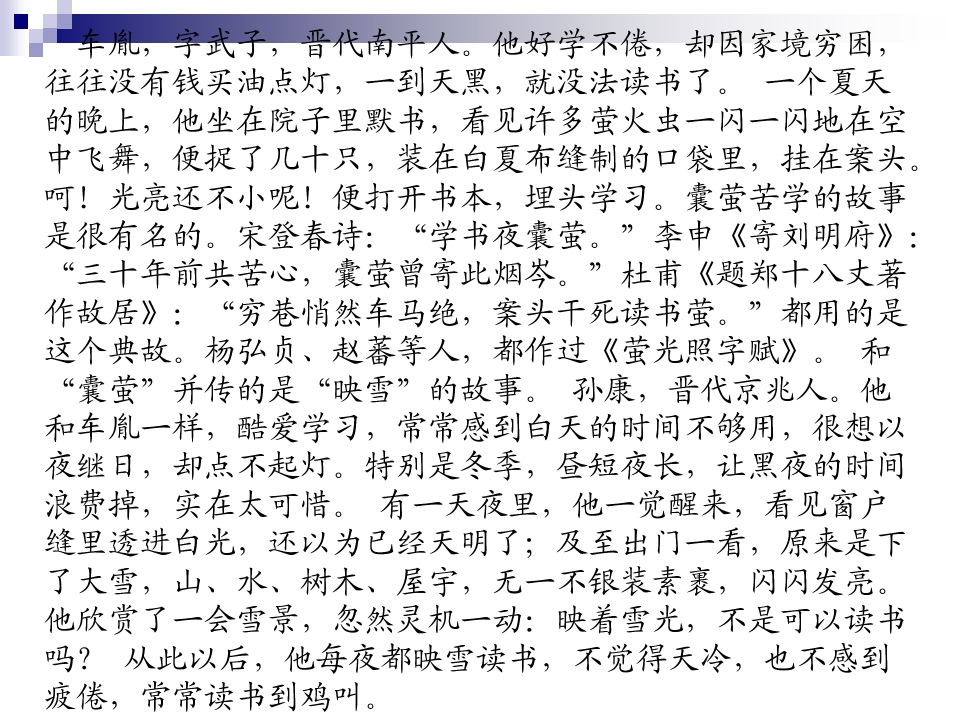 车胤，字武子，晋代南平人。他好学不倦，却因家境穷困，
往往没有钱买油点灯，一到天黑，就没法读书了。 一个夏天
的晚上，他坐在院子里默书，看见许多萤火虫一闪一闪地在空
中飞舞，便捉了几十只，装在白夏布缝制的口袋里，挂在案头。
呵！光亮还不小呢！便打开书本，埋头学习。囊萤苦学的故事
是很有名的。宋登春诗：“学书夜囊萤。”李申《寄刘明府》：
“三十年前共苦心，囊萤曾寄此烟岑。”杜甫《题郑十八丈著
作故居》：“穷巷悄然车马绝，案头干死读书萤。”都用的是
这个典故。杨弘贞、赵蕃等人，都作过《萤光照字赋》。 和
“囊萤”并传的是“映雪”的故事。 孙康，晋代京兆人。他
和车胤一样，酷爱学习，常常感到白天的时间不够用，很想以
夜继日，却点不起灯。特别是冬季，昼短夜长，让黑夜的时间
浪费掉，实在太可惜。 有一天夜里，他一觉醒来，看见窗户
缝里透进白光，还以为已经天明了；及至出门一看，原来是下
了大雪，山、水、树木、屋宇，无一不银装素裹，闪闪发亮。
他欣赏了一会雪景，忽然灵机一动：映着雪光，不是可以读书
吗？ 从此以后，他每夜都映雪读书，不觉得天冷，也不感到
疲倦，常常读书到鸡叫。